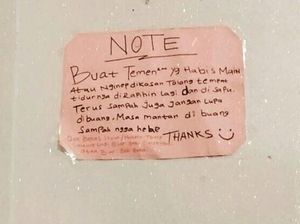 NOTE
Buat Temen" yg Habis Main
Atau Nginep dikosan Tolong tempat
tidurnya dirapihin lagi dan di sapu.
Terus sampah Juga Jangan Lupa
dibuang. Masa mantan di buang
Sampah ngga hehe
THANKS